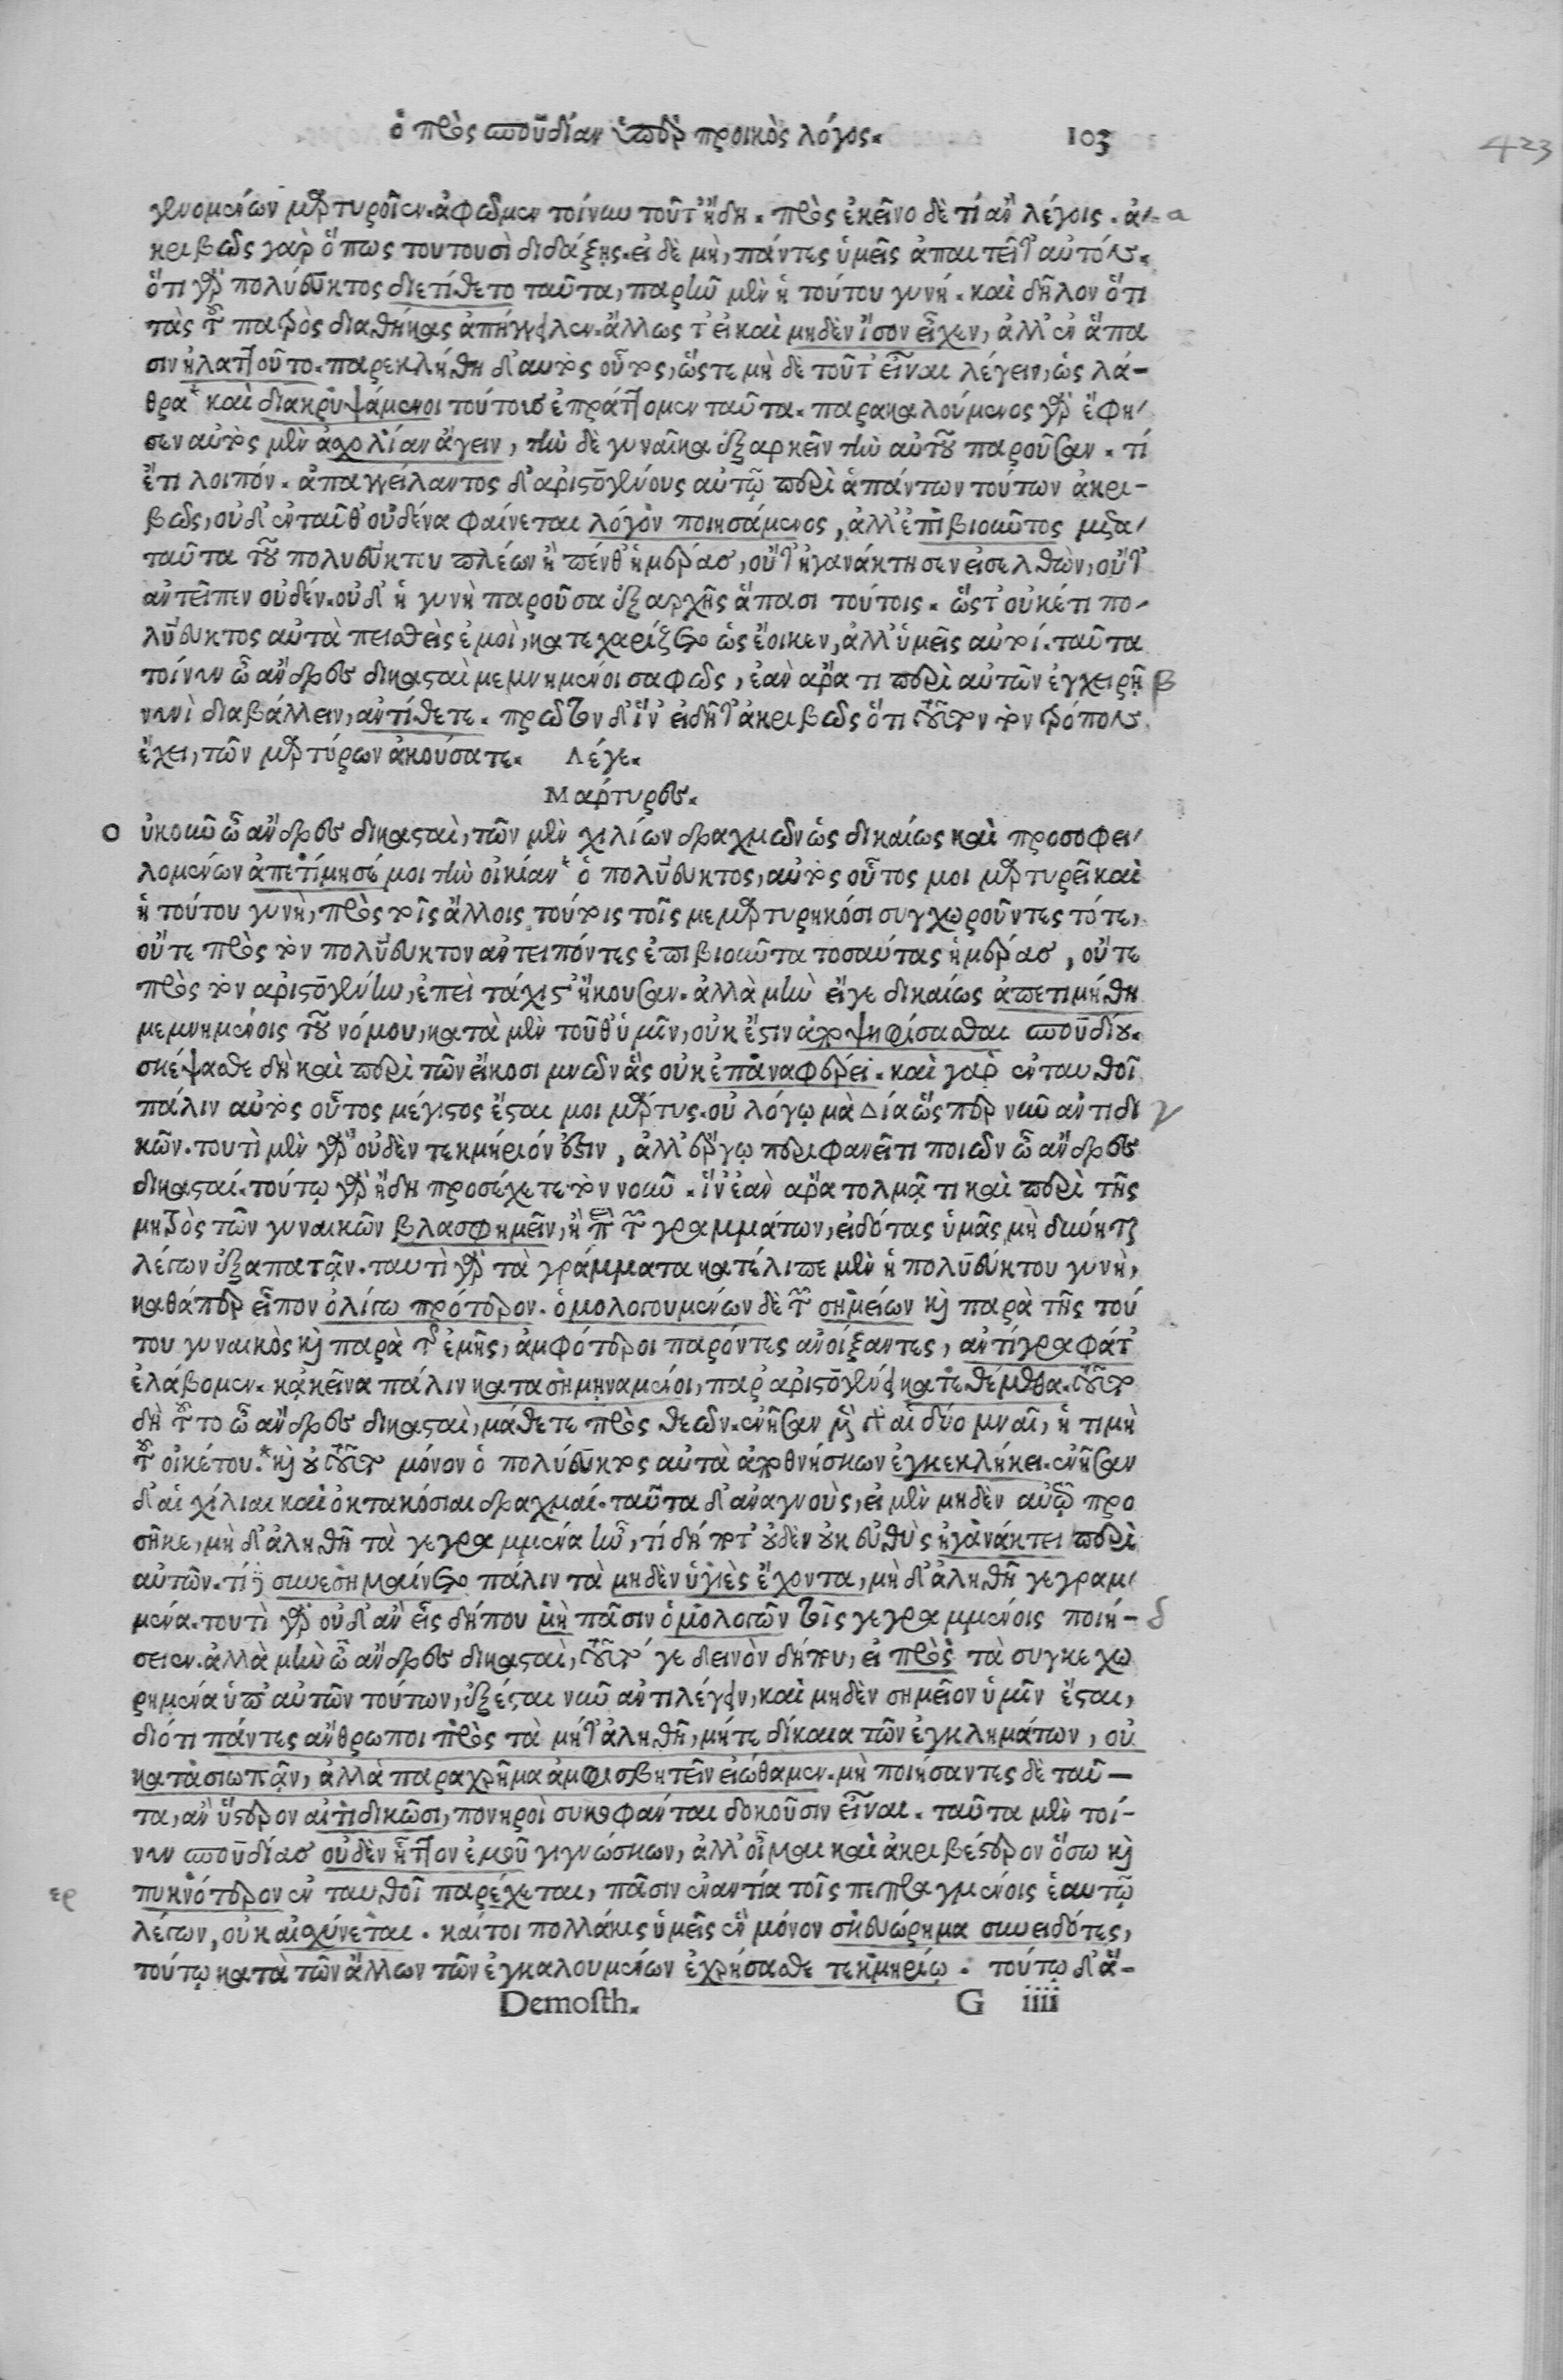 ὁ πρὸς σπουδίαν ὑπὲρ προικὸς λόγος. 103
423
γενομένων μαρτυροῦσιν. ἀφῶμεν τοίνυν τοῦτ' ἤδη. πρὸς ἐκεῖνο δὲ τί ἂν λέγοις. ἀ- α
κριβῶς γὰρ ὅπως τουτουσὶ διδάξῃς. εἰ δὲ μὴ, πάντες ὑμεῖς ἀπαιτεῖτ' αὐτόν.
ὅτι γὰρ πολύευκτος διετίθετο ταῦτα, παρῆν μὲν ἡ τούτου γυνή. καὶ δῆλον ὅτι
τὰς τοῦ πατρὸς διαθήκας ἀπήγγειλεν. ἄλλως τ' εἰ καὶ μηδὲν ἴσον εἶχεν, ἀλλ' ἐν ἅπα
σιν ἠλαττοῦτο. παρεκλήθη δ' αὐτὸς οὗτος, ὥστε μὴ δὲ τοῦτ' εἶναι λέγειν, ὡς λά-
θρα καὶ διακρυψάμενοι τούτους ἐπράττομεν ταῦτα. παρακαλούμενος γὰρ ἔφη-
σεν αὐτὸς μὲν ἀσχολίαν ἄγειν, τὴν δὲ γυναῖκα ἐξαρκεῖν τὴν αὐτοῦ παροῦσαν. τί
ἔτι λοιπόν. ἀπαγγείλαντος δ' ἀριστογένους αὐτῷ περὶ ἁπάντων τούτων ἀκρι-
βῶς, οὐδ' ἐνταῦθ' οὐδένα φαίνεται λόγον ποιησάμενος, ἀλλ' ἐπιβιοῦντος μετα-
ταῦτα τοῦ πολυεύκτου πλέων ἢ πένθ' ἡμέρας, οὔτ' ἠγανάκτησεν εἰσελθὼν, οὔτ'
ἀντεῖπεν οὐδέν. οὐδ' ἡ γυνὴ παροῦσα ἐξαρχῆς ἅπασι τούτοις. ὥστ' οὐκέτι πο-
λύευκτος αὐτὰ πεισθεὶς ἐμοὶ, κατεχαρίζετο ὡς ἔοικεν, ἀλλ' ὑμεῖς αὐτοί. ταῦτα
τοίνυν ὦ ἄνδρες δικασταὶ μεμνημένοι σαφῶς, ἐὰν ἄρα τι περὶ αὐτῶν ἐγχειρῇ β
νυνὶ διαβάλλειν, ἀντίθετε. πρῶτον δ' ἵν' εἰδῆτ' ἀκριβῶς ὅτι τοῦτον τὸν τρόπον
ἔχει, τῶν μαρτύρων ἀκούσατε. Λέγε.
Μάρτυρες.
Ουκοῦν ὦ ἄνδρες δικασταὶ, τῶν μὲν χιλίων δραχμῶν ὡς δικαίως καὶ προσοφει-
λομένων ἀπετίμησέ μοι τὴν οἰκίαν ὁ πολύευκτος, αὐτὸς οὗτος μοι μαρτυρεῖ καὶ
ἡ τούτου γυνὴ, πρὸς τοῖς ἄλλοις τούτοις τοῖς μεμαρτυρηκόσι συγχωροῦντες τότε,
οὔτε πρὸς τὸν πολύευκτον ἀντειπόντες ἐπιβιοῦντα τοσαύτας ἡμέρας, οὔτε
πρὸς τὸν ἀριστογένην, ἐπεὶ τάχιστ' ἤκουσαν. ἀλλὰ μὴν εἴγε δικαίως ἀπετιμήθη
μεμνημένοις τοῦ νόμου, κατὰ μὲν τοῦθ' ὑμῖν, οὐκ ἔστιν ἀποψηφίσασθαι σπουδίου.
σκέψασθε δὴ καὶ περὶ τῶν εἴκοσι μνῶν ἃς οὐκ ἐπαναφέρει. καὶ γὰρ ἐνταυθοῖ
πάλιν αὐτὸς οὗτος μέγιστος ἔσται μοι μάρτυς. οὐ λόγῳ μὰ Δία ὥσπερ νῦν ἀντιδι γ
κῶν. τουτὶ μὲν γὰρ οὐδὲν τεκμήριόν ἐστιν, ἀλλ' ἔργῳ περιφανεῖ τι ποιῶν ὦ ἄνδρες
δικασταί. τούτῳ γὰρ ἤδη προσέχετε τὸν νοῦν. ἵν' ἐὰν ἄρα τολμᾷ τι καὶ περὶ τῆς
μητρὸς τῶν γυναικῶν βλασφημεῖν, ἢ περὶ τῶν γραμμάτων, εἰδότας ὑμᾶς μὴ δύνηται
λέγων ἐξαπατᾷν. ταυτὶ γὰρ τὰ γράμματα κατέλιπε μὲν ἡ πολυεύκτου γυνὴ,
καθάπερ εἶπον ὀλίγῳ πρότερον. ὁμολογουμένων δὲ τῶν σημείων καὶ παρὰ τῆς τού
του γυναικὸς καὶ παρὰ τῆς ἐμῆς, ἀμφότεροι παρόντες ἀνοίξαντες, ἀντίγραφάτ'
ἐλάβομεν. κᾀκεῖνα πάλιν κατασημηναμένοι, παρ' ἀριστογένει κατεθέμεθα. τοῦτο
δὴ τοῦτο ὦ ἄνδρες δικασταὶ, μάθετε πρὸς θεῶν. ἐνῆσαν μὲν γὰρ αἱ δύο μναῖ, ἡ τιμὴ
τοῦ οἰκέτου. καὶ οὐ τοῦτο μόνον ὁ πολύευκτος αὐτὰ ἀποθνήσκων ἐγκεκλήκει. ἐνῆσαν
δ' αἱ χίλιαι καὶ ὀκτακόσιαι δραχμαί. ταῦτα δ' ἀναγνοὺς, εἰ μὲν μηδὲν αὐτῷ προ
σῆκε, μὴ δ' ἀληθῆ τὰ γεγραμμένα ἦν, τί δή ποτ' οὐδὲν οὐκ εὐθὺς ἠγανάκτει περὶ
αὐτῶν. τί δὲ συνεσημαίνετο πάλιν τὰ μηδὲν ὑγιὲς ἔχοντα, μὴ δ' ἀληθῆ γεγραμ-
μένα. τουτὶ γὰρ οὐδ' ἂν εἷς δήπου μὴ πᾶσιν ὁμολογῶν τοῖς γεγραμμένοις ποιή- δ
σειεν. ἀλλὰ μὴν ὦ ἄνδρες δικασταὶ, τοῦτό γε δεινὸν δήπου, εἰ πρὸς τὰ συγκεχω
ρημένα ὑπ' αὐτῶν τούτων, ἐξέσται νῦν ἀντιλέγειν, καὶ μηδὲν σημεῖον ὑμῖν ἔσται,
διότι πάντες ἄνθρωποι πρὸς τὰ μήτ' ἀληθῆ, μήτε δίκαια τῶν ἐγκλημάτων, οὐ
κατασιωπᾷν, ἀλλὰ παραχρῆμα ἀμφισβητεῖν εἰώθαμεν. μὴ ποιήσαντες δὲ ταῦ-
τα, ἂν ὕστερον ἀντιδικῶσι, πονηροὶ συκοφάνται δοκοῦσιν εἶναι. ταῦτα μὲν τοί-
νυν σπουδίας οὐδὲν ἧττον ἐμοῦ γιγνώσκων, ἀλλ' οἶμαι καὶ ἀκριβέστερον ὅσῳ καὶ
ερ πυκνότερον ἐνταυθοῖ παρέχεται, πᾶσιν ἐναντία τοῖς πεπραγμένοις ἑαυτῷ
λέγων, οὐκ αἰσχύνεται. καίτοι πολλάκις ὑμεῖς ἓν μόνον σκευώρημα συνειδότες,
τούτῳ κατὰ τῶν ἄλλων τῶν ἐγκαλουμένων ἐχρήσασθε τεκμηρίῳ. τούτῳ δ' ἅ-
Demosth. G iiii